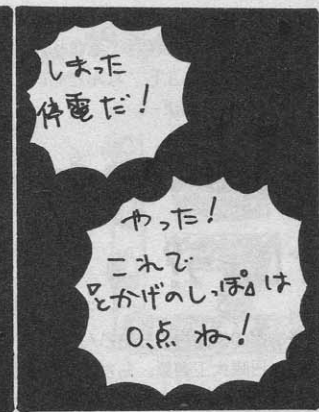 しまった
停電だ!
やった!
これで
『とかげのしっぽ』は
0点ね!